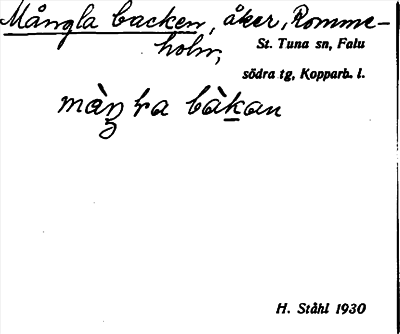 Mångla backen, åker, Romme-
holm, St. Tuna sn, Falu
södra tg, Kopparb. l.
bàkan
H. Ståhl 1930